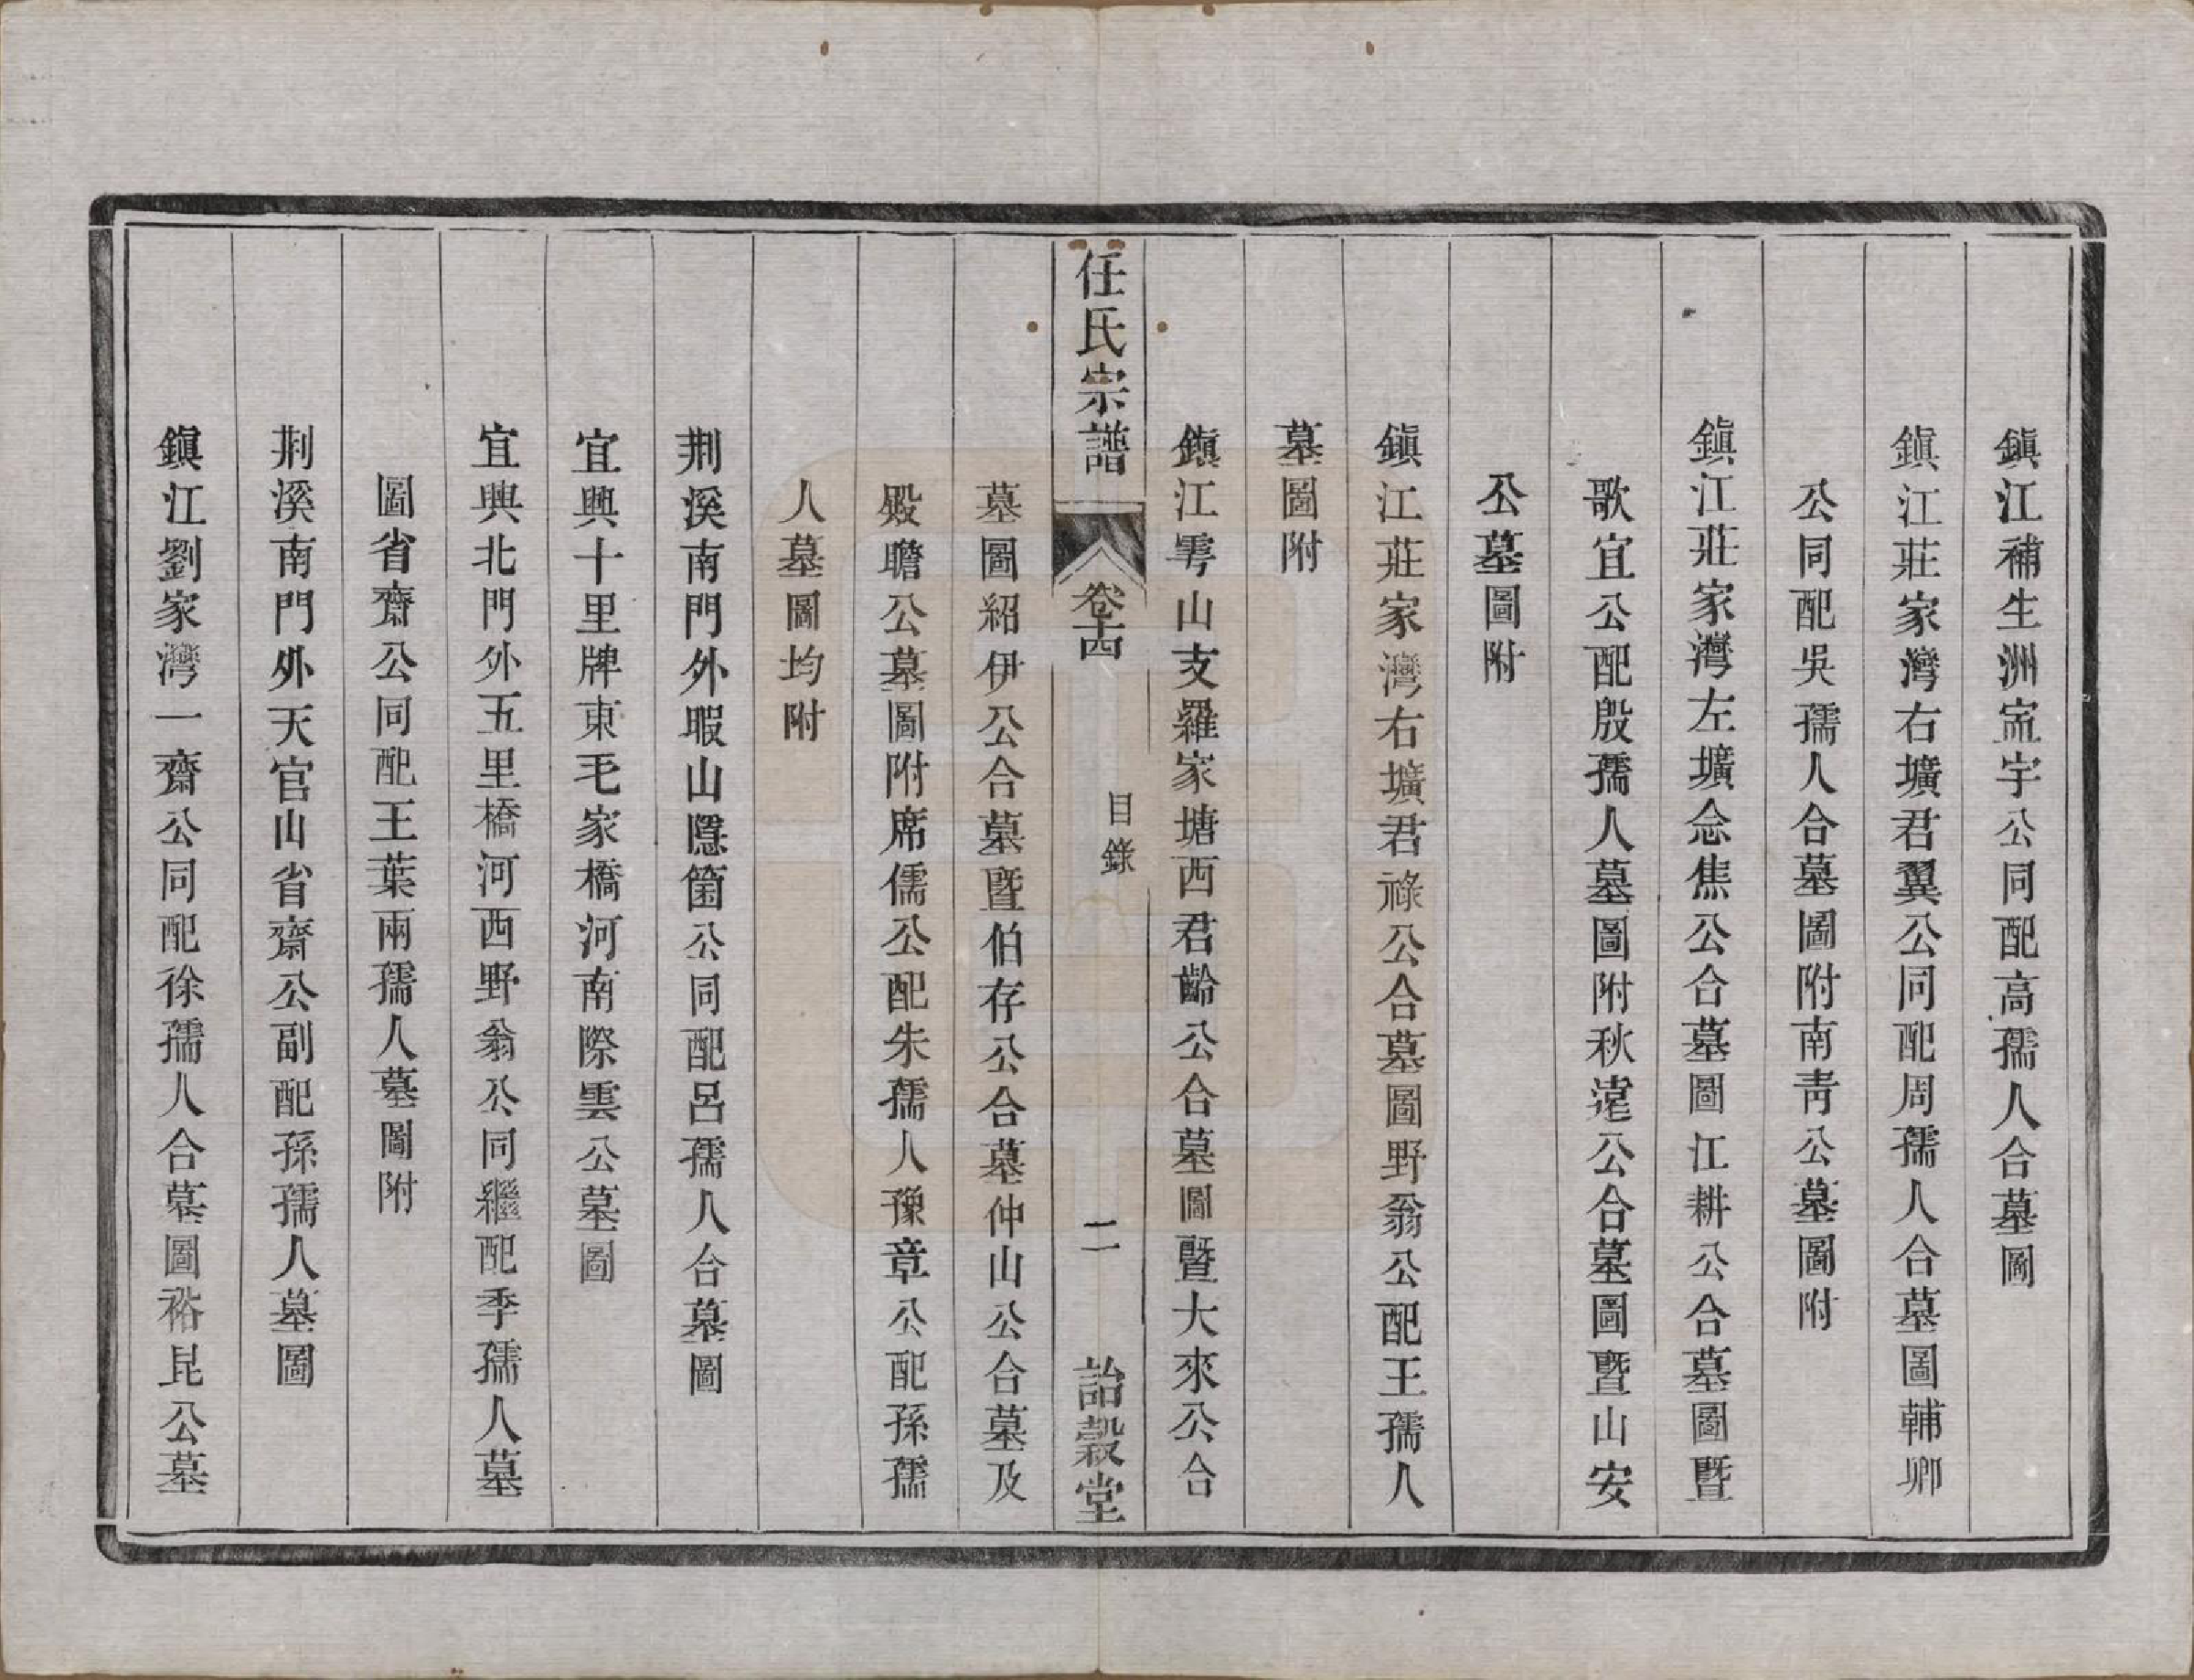 鎮江補生洲寍宇公同配高孺人合墓圖
鎮江莊家灣右壙君翼公同配周孺人合墓圖輔卿
公同配吳孺人合墓圖附南靑公墓圖附
鎮江莊家灣左壙念焦公合墓圖江耕公合墓圖暨
歌宜公配殷孺人墓圖附秋公合墓圖暨山安
公墓圖附
鎮江莊家灣右壙君祿公合墓圖野翁公配王孺人
墓圖附
鎮江雩山支羅家塘西君齡公合墓圖暨大來公合
墓圖紹伊公合墓暨伯存公合墓仲山公合墓及
殿瞻公墓圖附席儒公配朱孺人豫章公配孫孺
人墓圖均附
任氏宗譜
卷十四
目錄
二
詒穀堂
荆溪南門外暇山隱箇公同配呂孺人合墓圖
宜興十里牌東毛家橋河南際雲公墓圖
宜興北門外五里橋河西野翁公同繼配季孺人墓
圖省齋公同配王葉兩孺人墓圖附
荆溪南門外天官山省齋公副配孫孺人墓圖
鎮江劉家灣一齋公同配徐孺人合墓圖裕昆公墓